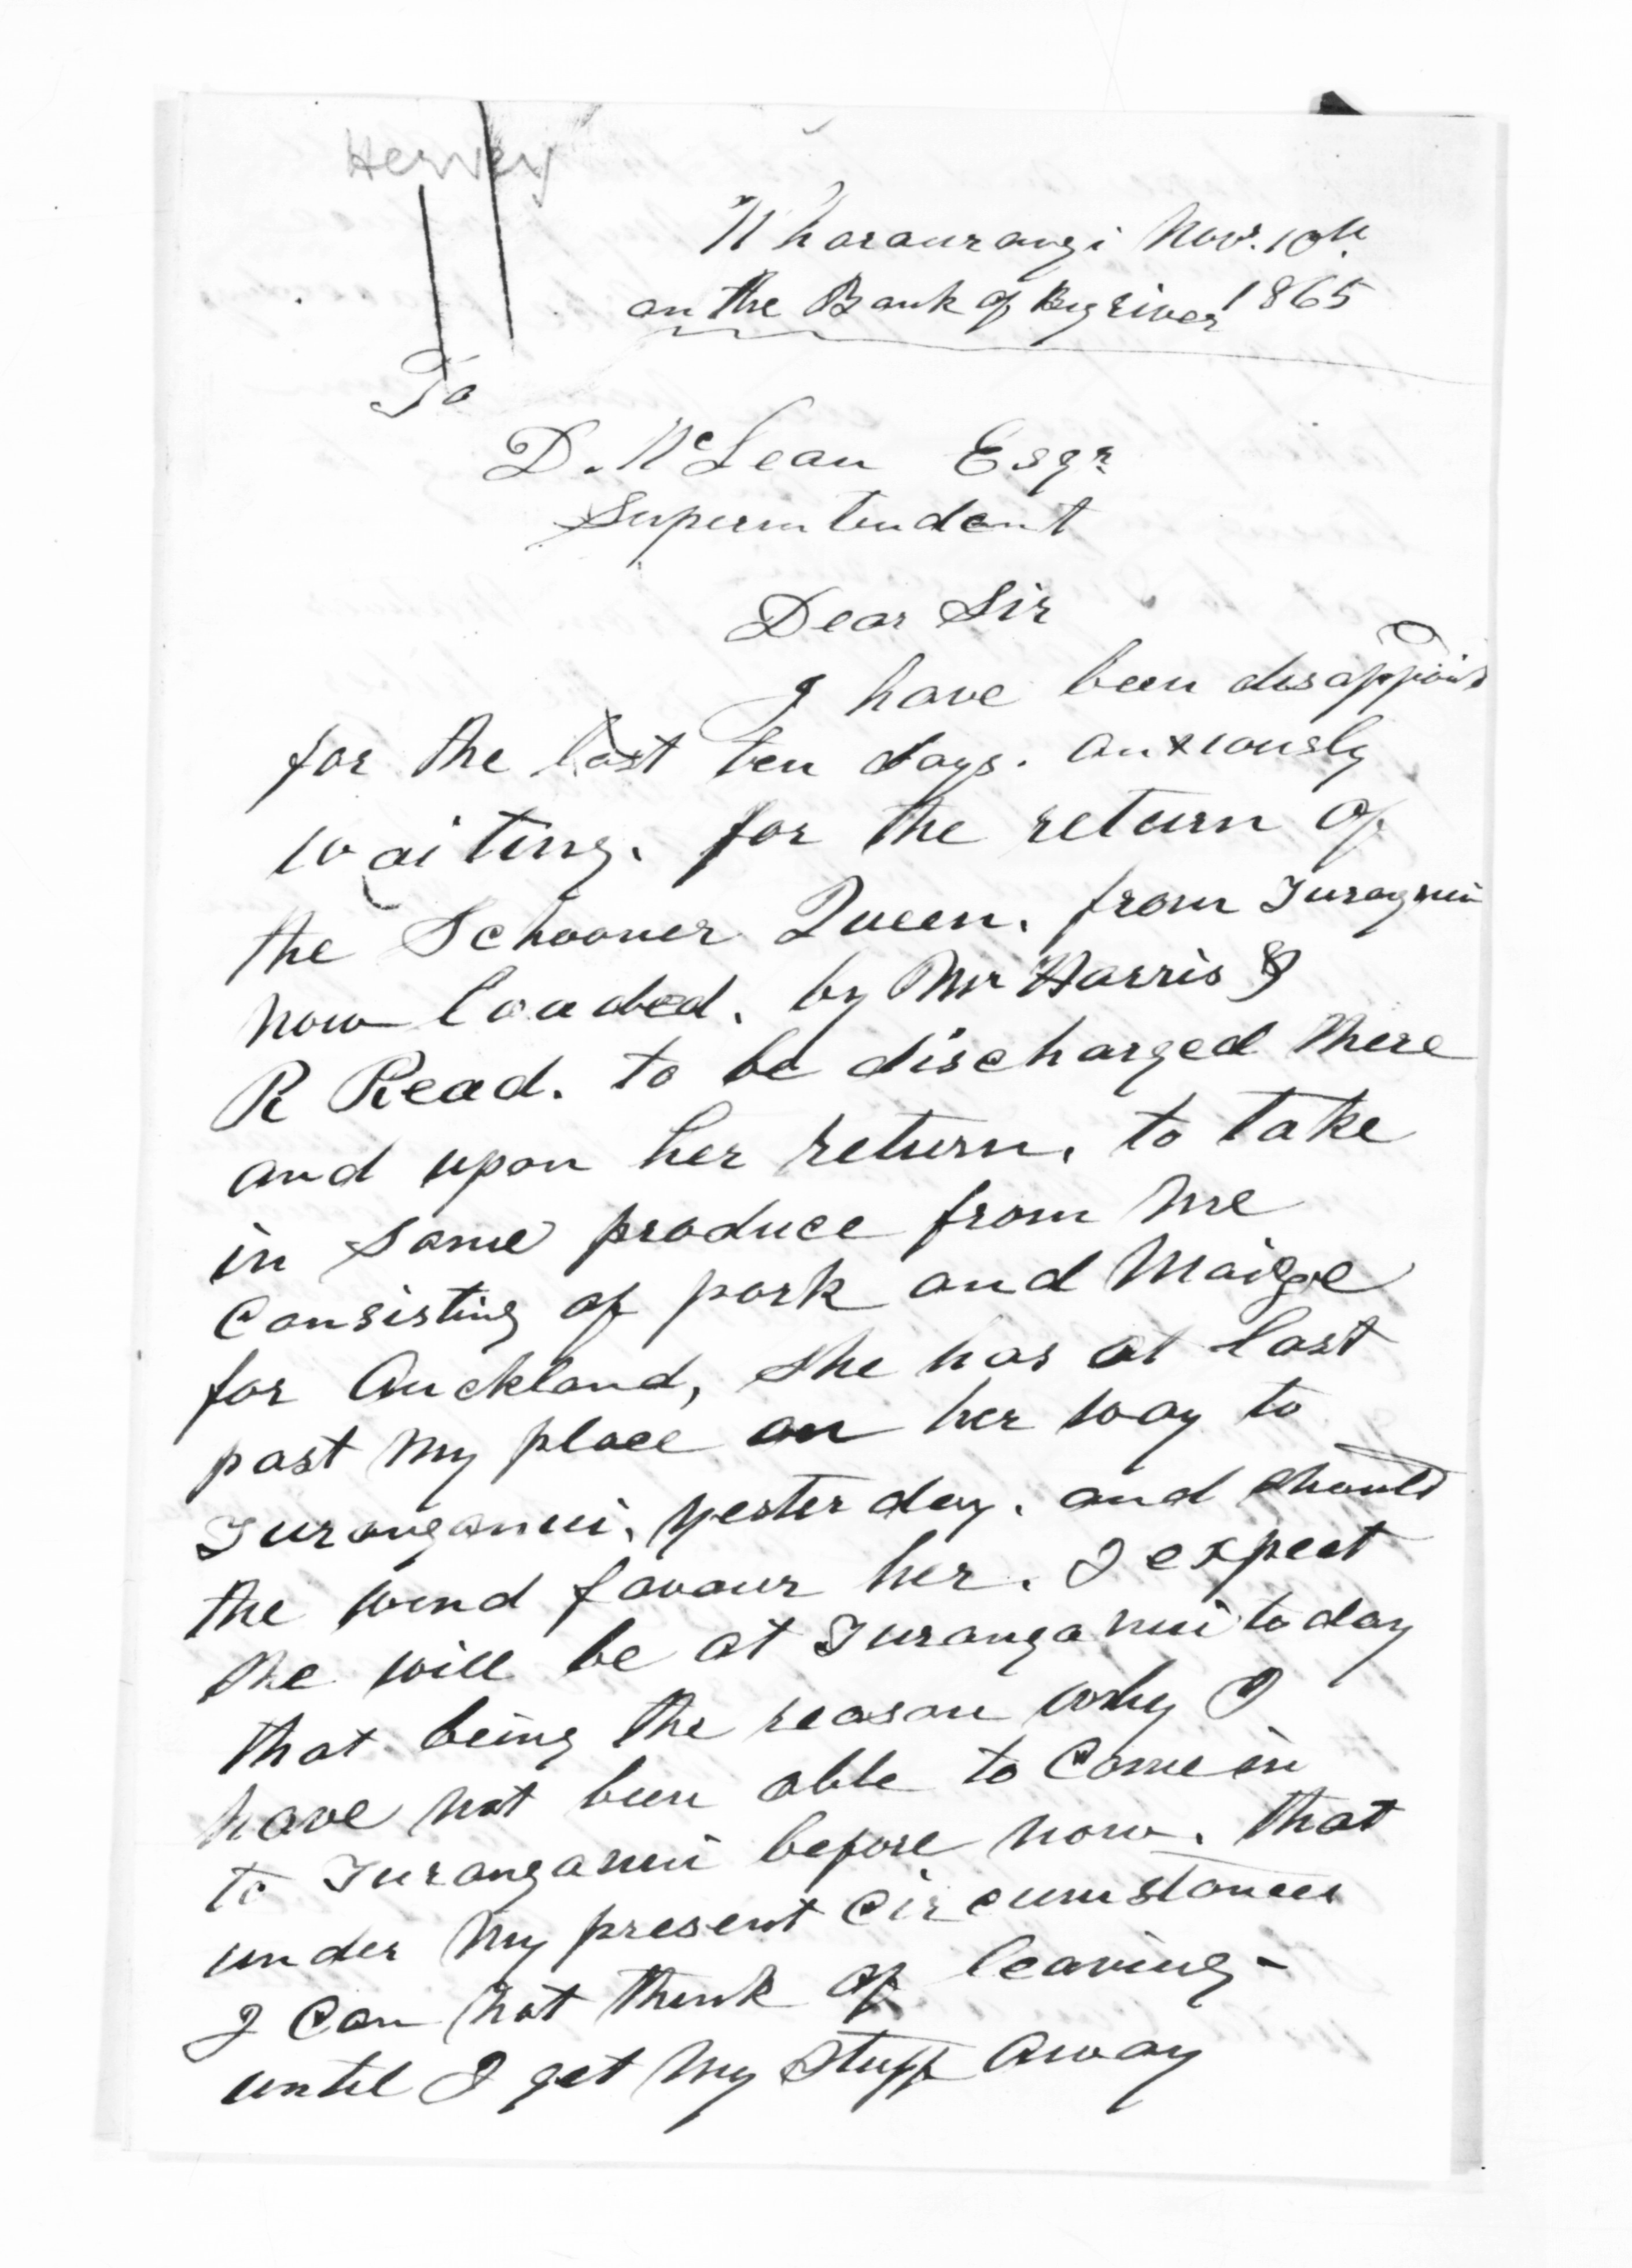 Hervey
Wharaurangi Novr. 10th
on the Bank of Big river 1865
To
D. McLean Esqr
Superintendent
Dear Sir
I have been disappoint
for the last ten days. anxiously
waiting. for the return of
the Schooner Queen. from
now loaded. by Mr Harris &
R Read. to be discharged there
and upon her return. to take
in some produce from me
Consisting of pork and Maize
for Auckland, she has at last
past my place on her way to
Turanganui. yesterday. and should
the wind favour her. I expect
she will be at Turanganui to day
that being the reason why I
have not been able to Come in
to Turanganui before now. that
under my present Circumstances
I Can not think of leaving -
until I get my Stuff away